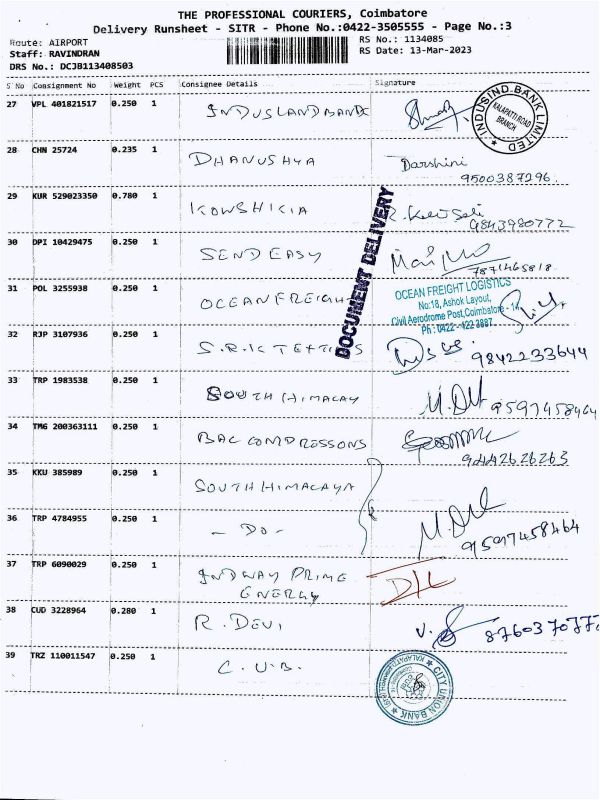 THE PROFESSIONAL COURIERS, Coimbatore
Delivery Runsheet - SITR - Phone No.:0422-3505555 - Page No.:3
Route: AIRPORT
RS No.: 1134085
Staff: RAVINDRAN
RS Date: 13-Mar-2023
DRS No.: DCJB113408503
S No Consignment No Weight PCS Consignee Details Signature
27 VPL 401821517 0.250 1 INDUSLAND BANK
INDUSIND BANK LIMITED
KALAPATTI ROAD
BRANCH
28 CHN 25724 0.235 1 DHANUSHYA Darshini
9500387296
29 KUR 529023350 0.780 1 KOWSHIKIA
9843980772
30 DPI 10429475 0.250 1 SEND EASY
7871465818
DOCUMENT DELIVERY
31 POL 3255938 0.250 1 OCEAN FREIGHT
OCEAN FREIGHT LOGISTICS
No:18, Ashok Layout,
Civil Aerodrome Post, Coimbatore - 14
Ph : 0422 - 422 3887
32 RJP 3107936 0.250 1 S.R.K TEXTILES 9842233644
33 TRP 1983538 0.250 1 SOUTH HIMALAY 9597458464
34 TMG 200363111 0.250 1 BAC COMPRESSONS
9442626263
35 KKU 385989 0.250 1 SOUTH HIMALAYA
36 TRP 4784955 0.250 1 - DO -
9597458464
37 TRP 6090029 0.250 1 INDWAY PRIME
ENERGY
38 CUD 3228964 0.280 1 R. DEVI
39 TRZ 110011547 0.250 1 C.U.B.
CITY UNION BANK